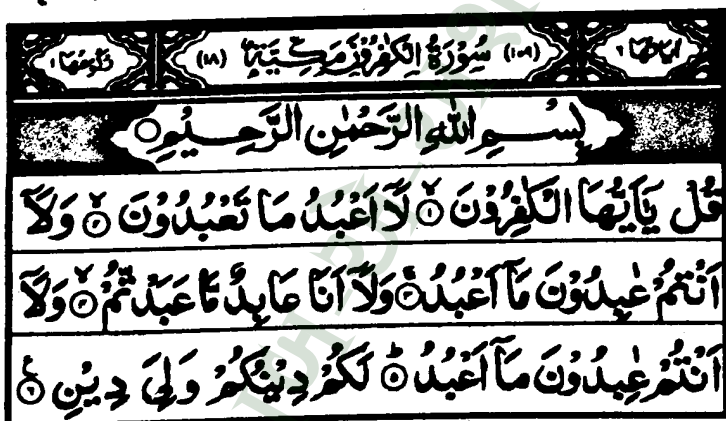 اٰيَاتُهَا ٦ (١٠٩) سُوْرَةُ الْكٰفِرُوْنَ مَكِّيَّةٌ (١٨) رُكُوْعُهَا ١
بِسْمِ اللهِ الرَّحْمٰنِ الرَّحِيْمِ ○
قُلْ يٰۤاَيُّهَا الْكٰفِرُوْنَ ۙ﴿١﴾ لَاۤ اَعْبُدُ مَا تَعْبُدُوْنَ ۙ﴿٢﴾ وَلَاۤ
اَنْتُمْ عٰبِدُوْنَ مَاۤ اَعْبُدُ ۚ﴿٣﴾ وَلَاۤ اَنَا عَابِدٌ مَّا عَبَدْتُّمْ ۙ﴿٤﴾ وَلَاۤ
اَنْتُمْ عٰبِدُوْنَ مَاۤ اَعْبُدُ ؕ﴿٥﴾ لَكُمْ دِيْنُكُمْ وَلِيَ دِيْنِ ﴿٦﴾